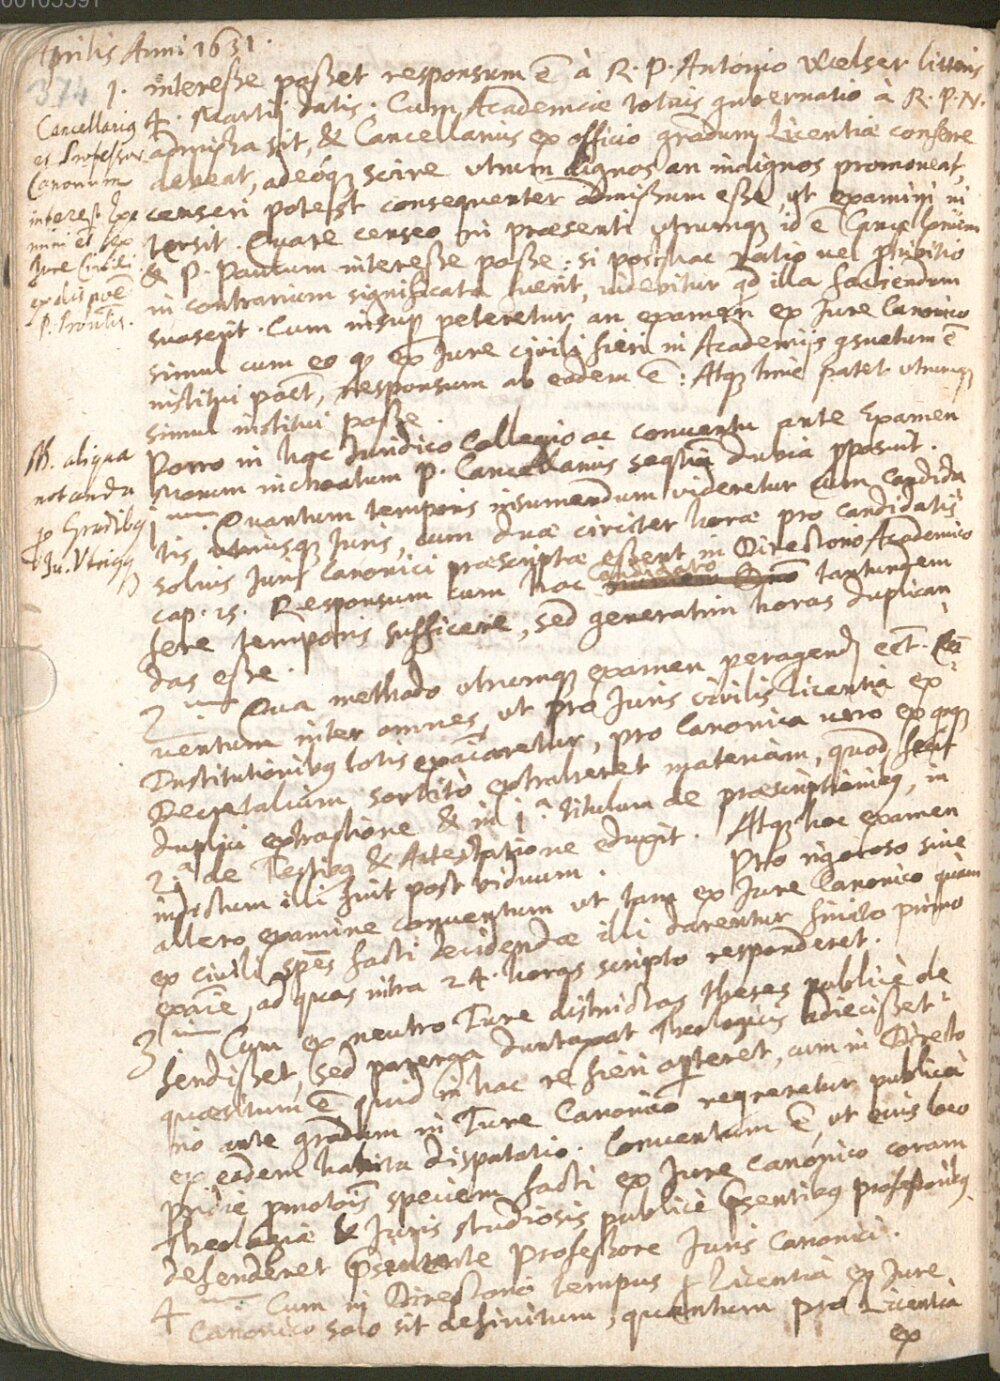 Aprilis Anni 1631.
374
1. interesse posset responsum ē à R. P. Antonio Welser litteris
4. Martij datis. Cum Academiae totius gubernatio à R. P. N.
sit, & Cancellarius ex officio gradum Licentiae conferre
debeat, adeóq; scire utrum dignos an indignos promoveat,
censeri potest consequenter admissum esse, ut examini in
tersit. Quare censeo in praesenti utrumque id ē Cancellarium
& P. interesse posse: si posthac ratio vel
in contrarium significata fuerit, videbitur qd illa faciendum
suaserit. Cum insup peteretur an examen ex Jure Canonico
simul cum eo qd ex Jure civili fieri in Academijs gsuetum ē
institui poēt, Responsum ab eodem ē: Atq; hinc patet utrumq;
simul institui posse
Cancellarius
et Professor
Canonum
interest Exa
mini et ex
Jure Civili
ex dispōe
P.
Porro in hoc Juridico Collegio ac conventu ante Examen
inchoatum P. Cancellarius seqtia dubia pposuit.
NB. aliqua
notanda
p Gradibq
Ju. Utriqq
1 Quantum temporis insumendum videretur cum Candida
tis utriusq; Juris, cum duae circiter horae pro candidatis
solius Juris Canonici praescriptae essent in Directorio Academico
cap. 15. Responsum cum hoc candidato tantundem
fere temporis sufficere, sed generatim horas duplican
das esse.
2 Qua methodo utrumq; examen peragend ect. Con
ventum inter omnes, ut pro Juris civilis licentia ex
Institutionibq totis exāiaretur, pro Canonica vero ex qnq;
Decretalium sortitò extraheret materiam, quod fecit
duplici extractione & in 1ª titulum de praescriptionibq, in
2ª de Testibq & Attestatione eduxit. Atq; hoc examen
indictum illi fuit post biduum. Pro rigoroso sive
altero examine conventum ut tam ex Jure Canonico quàm
ex civili spēs facti decidendae illi darentur finito primo
exāie, ad quas intra 24. horas scripto responderet.
3 Cum ex neutro Jure districtas theses publicè de
fendisset, sed parerga duntaxat Theologicis adiecisset
quaesitum ē quid in hac re fieri oporteret, cum in Directo
rio ante gradum in Jure Canonico reqreretur publica
ex eodem habita disputatio. Conventum ē, ut eius loco
pridie pmotōis speciem facti ex Jure Canonico coram
Theologiae & Juris studiosis publicè psentibq professoribq
defenderet psidente Professore Juris Canonici.
4 Cum in Directorio tempus p Licentia ex Jure
Canonico solo sit definitum, quantum pro Licentia
ex